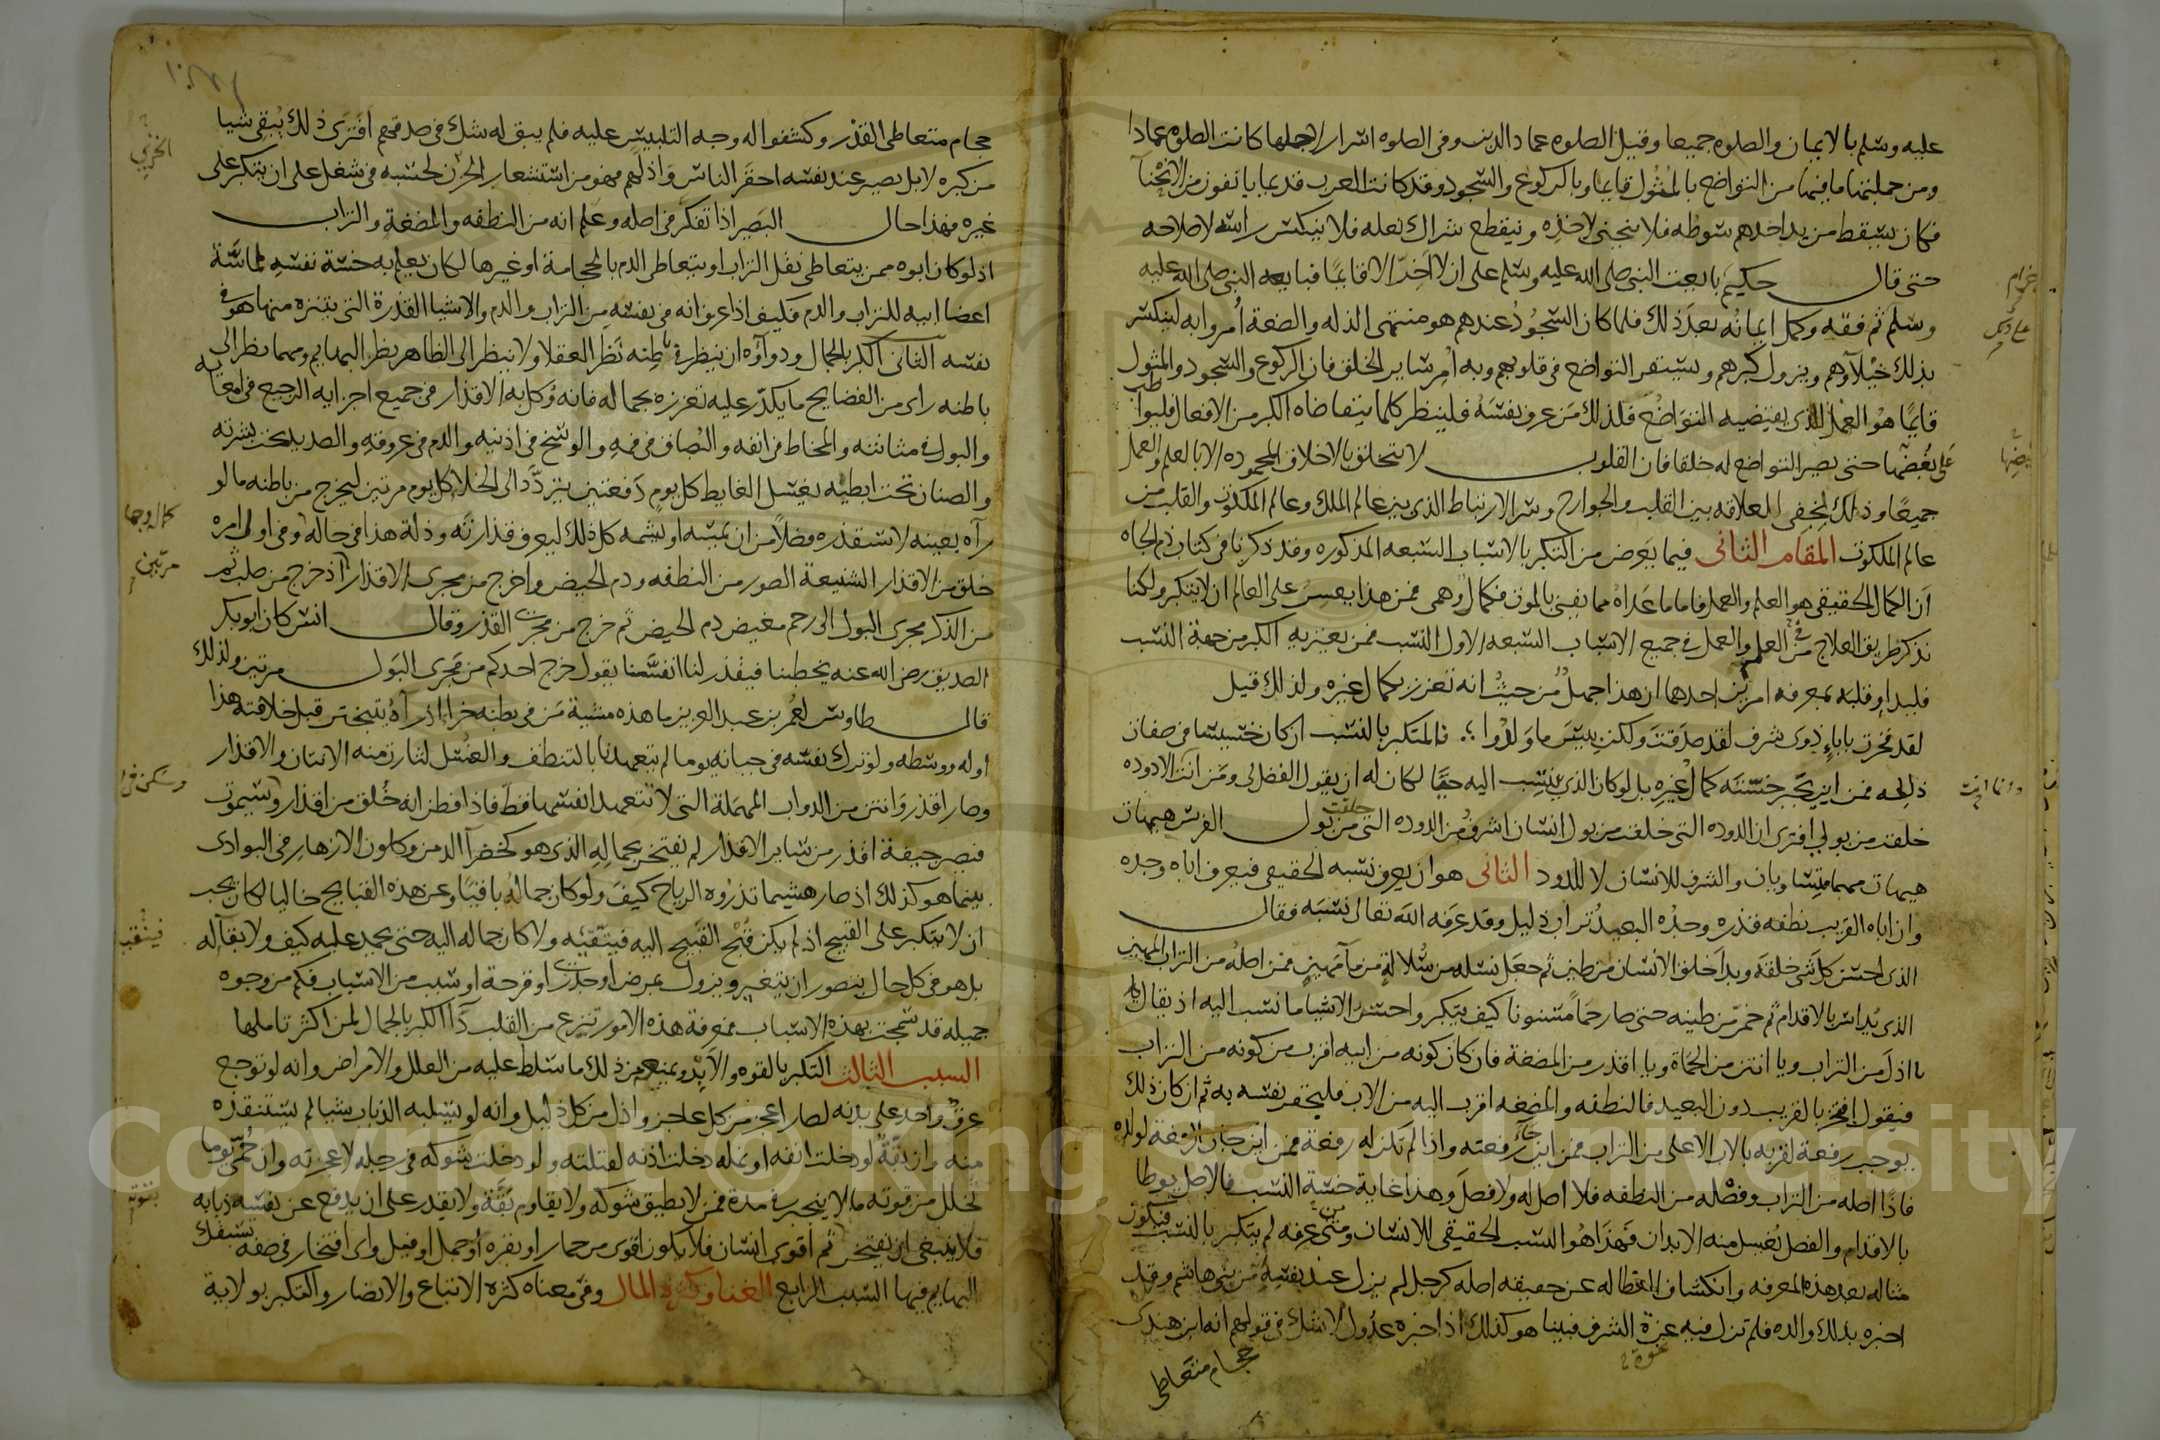 عليه وسلم بالايمان والصلوه جميعا وقيل الصلوه عماد الدين وفي الصلوه اسرار لاجلها كانت الصلوه عمادا
ومن جملتها ما فيها من التواضع بالمثول قايما وبالركوع والسجود وقد كانت العرب قديما يانفون من الانحنا
فكان يسقط من يد احدهم سوطه فلا ينحني لاخذه وينقطع شراك نعله فلا ينكس راسه لاصلاحه
حتى قال حكيم بايعت النبي صلى الله عليه وسلم على ان لا اخر الا قايما فبايعه النبي صلى الله عليه
وسلم ثم فقه وكمل ايمانه بعد ذلك فلما كان السجود عندهم هو منتهى الذله والضعة أمروا به لينكسر
بذلك خيلآوهم ويزول كبرهم ويستقر التواضع في قلوبهم وبه امر ساير الخلق فان الركوع والسجود والمثول
قايمًا هو العمل الذي يقتضيه التواضع فلذلك من عرف نفسه فلينظر كلما يتقاضاه الكبر من الافعال فليواظب
على نقيضها حتى يصير التواضع له خلقا فان القلوب لا تتخلق بالاخلاق المحموده الا بالعلم والعمل
جميعًا وذلك لخفي العلاقه بين القلب والجوارح وسر الارتباط الذي بين عالم الملك وعالم الملكوت والقلب من
عالم الملكوت المقام الثاني فيما يعرض من التكبر بالاسباب السبعه المذكوره وقد ذكرنا في كتاب ذم الجاه
ان الكمال الحقيقي هو العلم والعمل فاما ما عداه مما يفنى بالموت فكمال وهمي فمن هذا يعسر على العالم ان لا يتكبر ولكنا
نذكر طريق العلاج من العلم والعمل في جميع الاسباب السبعه الاول النسب فمن يعتريه الكبر من جهة النسب
فليداو قلبه بمعرفه امرين احدهما ان هذا جهل من حيث انه تعزز بكمال غيره ولذلك قيل
لقد فخرت باباء ذوي شرف لقد صدقت ولكن بيس ما ولدوا فالمتكبر بالنسب ان كان خسيسا في صفات
ذاته فمن اين يجبر خسته كمال غيره بل لوكان الذي ينسب اليه حيًا لكان له ان يقول الفضل لي ومن انت الا دوده
خلقت من بولي افترى ان الدوده التي خلقت من بول انسان اشرف من الدوده التي خلقت من بول الفرس هيهات
هيهات مهما متساويان والشرف للانسان لا للدود الثاني هو ان يعرف نسبه الحقيقي فيعرف اباه وجده
وان اباه القريب نطفه قذره وجده البعيد تراب ذليل وقد عرفه الله تعالى نسبه فقال
الذي احسن كل شي خلقه وبدا خلق الانسان من طين ثم جعل نسله من سلالة من مآ مهين فمن اصله من التراب المهين
الذي يداس بالاقدام ثم خمر من طينه حتى صار حمأ مسنونا كيف يتكبر واحسن الاشيا ما نسب اليه اذ يقال يا
اذل من التراب ويا انتن من الحماة ويا اقذر من المضغة فان كان كونه من ابيه اقرب من كونه من التراب
فيقول افتخر بالقريب دون البعيد فالنطفه والمضغه اقرب اليه من الاب فليحقر نفسه به ثم ان كان ذلك
يوجب رفعة لقربه فالاب الاعلى من التراب فمن اين رفعته واذا لم تكن له رفعة فمن اين جات الرفعه لولده
فاذا اصله من التراب وفصله من النطفه فلا اصل له ولا فصل وهذا غاية خسة النسب فالاصل يوطا
بالاقدام والفصل تغسل منه الابدان فهذا هو النسب الحقيقي للانسان ومن عرفه لم يتكبر بالنسب فيكون
مثاله بعد هذه المعرفه وانكشاف الغطا له عن حقيقه اصله كرجل لم يزل عند نفسه من بني هاشم وقد
اخبره بذلك والده فلم تزل فيه عزة الشرف فبينا هو كذلك اذ اخبره عدول لا يشك في قولهم انه ابن هندي
حجام متعاطي
حجام متعاطي القذر وكشفوا له وجه التلبيس عليه فلم يبق له شك في صدقهم افترى ذلك يبقي شيا
من كبره لا بل يصير عند نفسه احقر الناس واذلهم فهو من استشعار الحزن لخسته في شغل على ان يتكبر على
غيره فهذا حال البصير اذا تفكر في اصله وعلم انه من النطفه والمضغة والتراب
اذ لو كان ابوه ممن يتعاطى نقل التراب او يتعاطى الدم بالحجامة او غيرها لكان يعلم به خسة نفسه لمماسّة
اعضا ابيه للتراب والدم فكيف اذا عرف انه في نفسه من التراب والدم والاشيا القذرة التي يتنزه منها هو في
نفسه الثاني الكبر بالجمال ودوآوه ان ينظر في باطنه نظر العقلا ولا ينظر الى الظاهر نظر البهايم ومهما نظر الى
باطنه راى من الفضايح ما يكدر عليه تعززه بجماله فانه وكل به الاقذار في جميع اجزايه الرجيع في امعايه
والبول في مثانته والمخاط في انفه والبصاف في فمه والوسخ في اذنيه والدم في عروقه والصديد تحت بشرته
والصنان تحت ابطيه يغسل الغايط كل يوم دفعتين يتردّد الى الخلا كل يوم مرتين ليخرج من باطنه ما لو
رآه بعينه لاستقذره فضلًا من ان يمسه او يشمه كل ذلك ليعرف قذارته وذلة هذا في حاله وفي اول امره
خلق من الاقذار الشنيعة الصور من النطفه ودم الحيض واخرج من مجرى الاقذار اذ خرج من صلب ثم
من الذكر مجرى البول الى رحم مغيض دم الحيض ثم خرج من مجرى القذر وقال انس كان ابو بكر
الصديق رضي الله عنه يخطبنا فيقذر لنا انفسنا يقول خرج احدكم من مجرى البول مرتين ولذلك
قال طاوس لعمر بن عبد العزيز ما هذه مشية من في بطنه خرا اذ رآه يتبختر قبل خلافته هذا
اوله ووسطه ولو ترك نفسه في حياته يوما لم يتعهدها بالتنظف والغسل لثارت منه الانتان والاقذار
وصار اقذر وانتن من الدواب المهملة التي لا تتعهد انفسها قط فاذا فطن انه خلق من اقذار وسيموت
فيصير جيفة اقذر من ساير الاقذار لم يفتخر بجماله الذي هو كخضرآ الدمن وكلون الازهار في البوادي
بينما هو كذلك اذ صار هشيما تذروه الرياح كيف ولو كان جماله باقيًا وعن هذه القبايح خاليا لكان يجب
ان لا يتكبر على القبيح اذ لم يكن قبح القبيح اليه فينفيه ولا كان جماله اليه حتى يحمد عليه كيف ولا بقآ له
بل هو في كل حال يتصور ان يتغير ويزول بمرض او جدري او قرحة او سبب من الاسباب فكم من وجوه
جميله قد سمجت بهذه الاسباب فمعرفة هذه الامور تنزع من القلب دآ الكبر بالجمال لمن اكثر تاملها
السبب الثالث التكبر بالقوه والايد ويمنعه من ذلك ما سلط عليه من العلل والامراض وانه لو توجع
عرق واحد على بدنه لصار اعجز من كل عاجز واذل من كل ذليل وانه لو يسلبه الذباب شيا لم يستنقذه
منه وان بقّة لو دخلت انفه او نمله دخلت اذنه لقتلته ولو دخلت شوكه في رجله لاعجزته وان حمّى يوما
تحلل من قوته ما لا ينجبر في مدة فمن لا يطيق شوكه ولا يقاوم بقّة ولا يقدر على ان يدفع عن نفسه ذبابه
فلا ينبغي ان يفتخر ثم ان قوي انسان فلا يكون اقوى من حمار او بقره او جمل او فيل واي افتخار في صفه تسبقك
البهايم فيها السبب الرابع الغنا وكثرة المال وفي معناه كثرة الاتباع والانصار والتكبر بولاية
Copyright © King Saud University